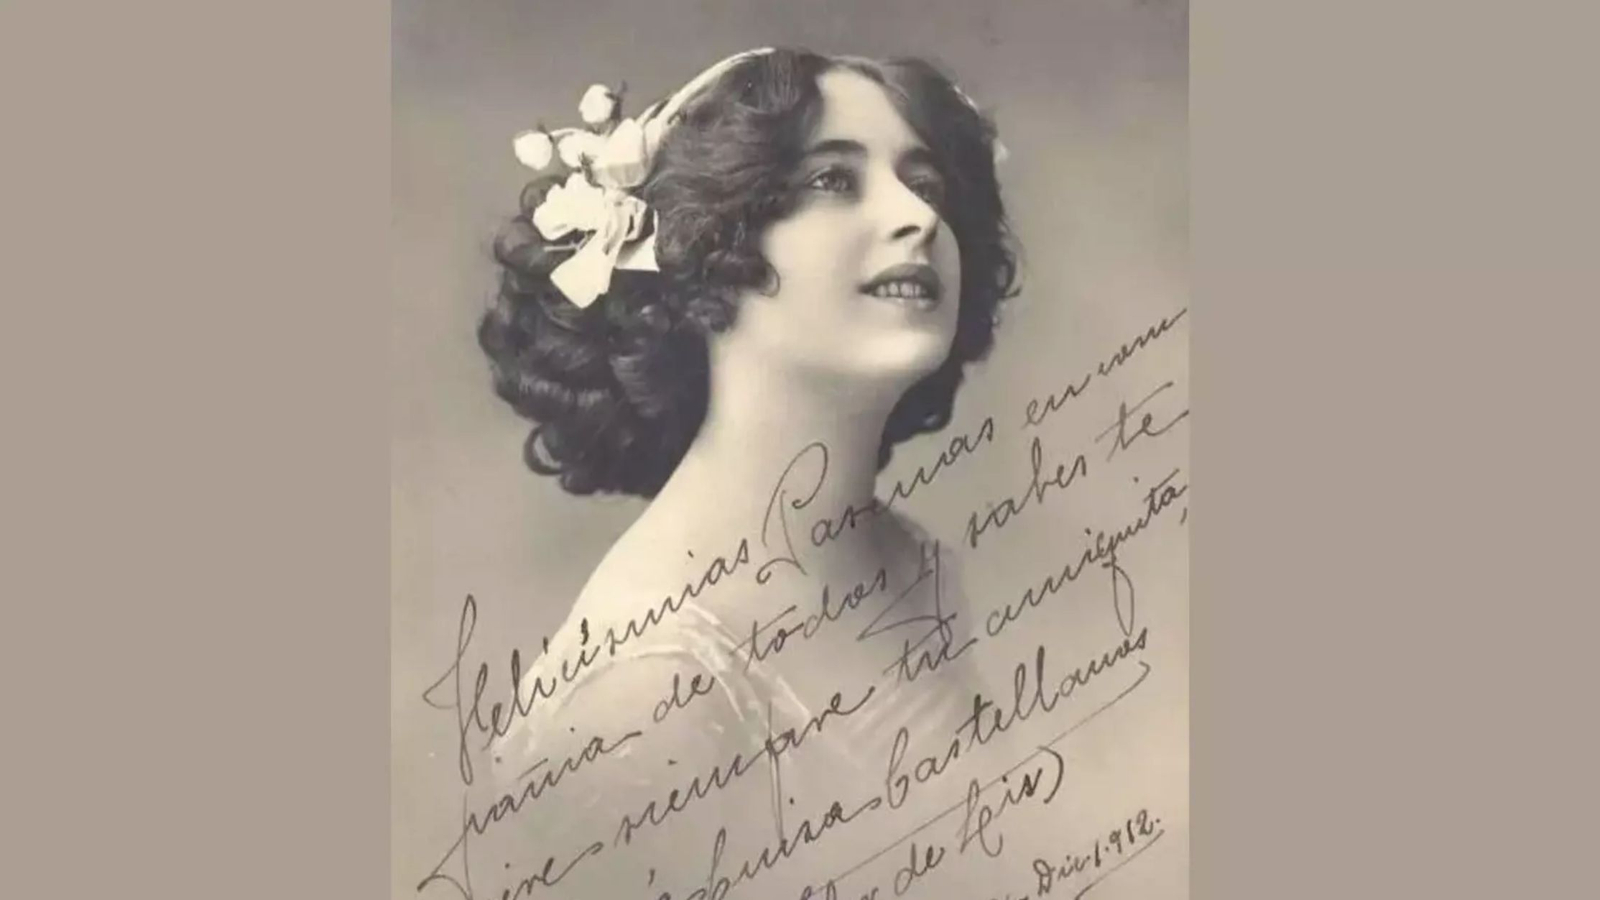 Felicísimas Pascuas en com
pañia de todos y sabes te
siempre tu amiguita,
Luisa Castellanos
de Lis)
Dic. 1.912.